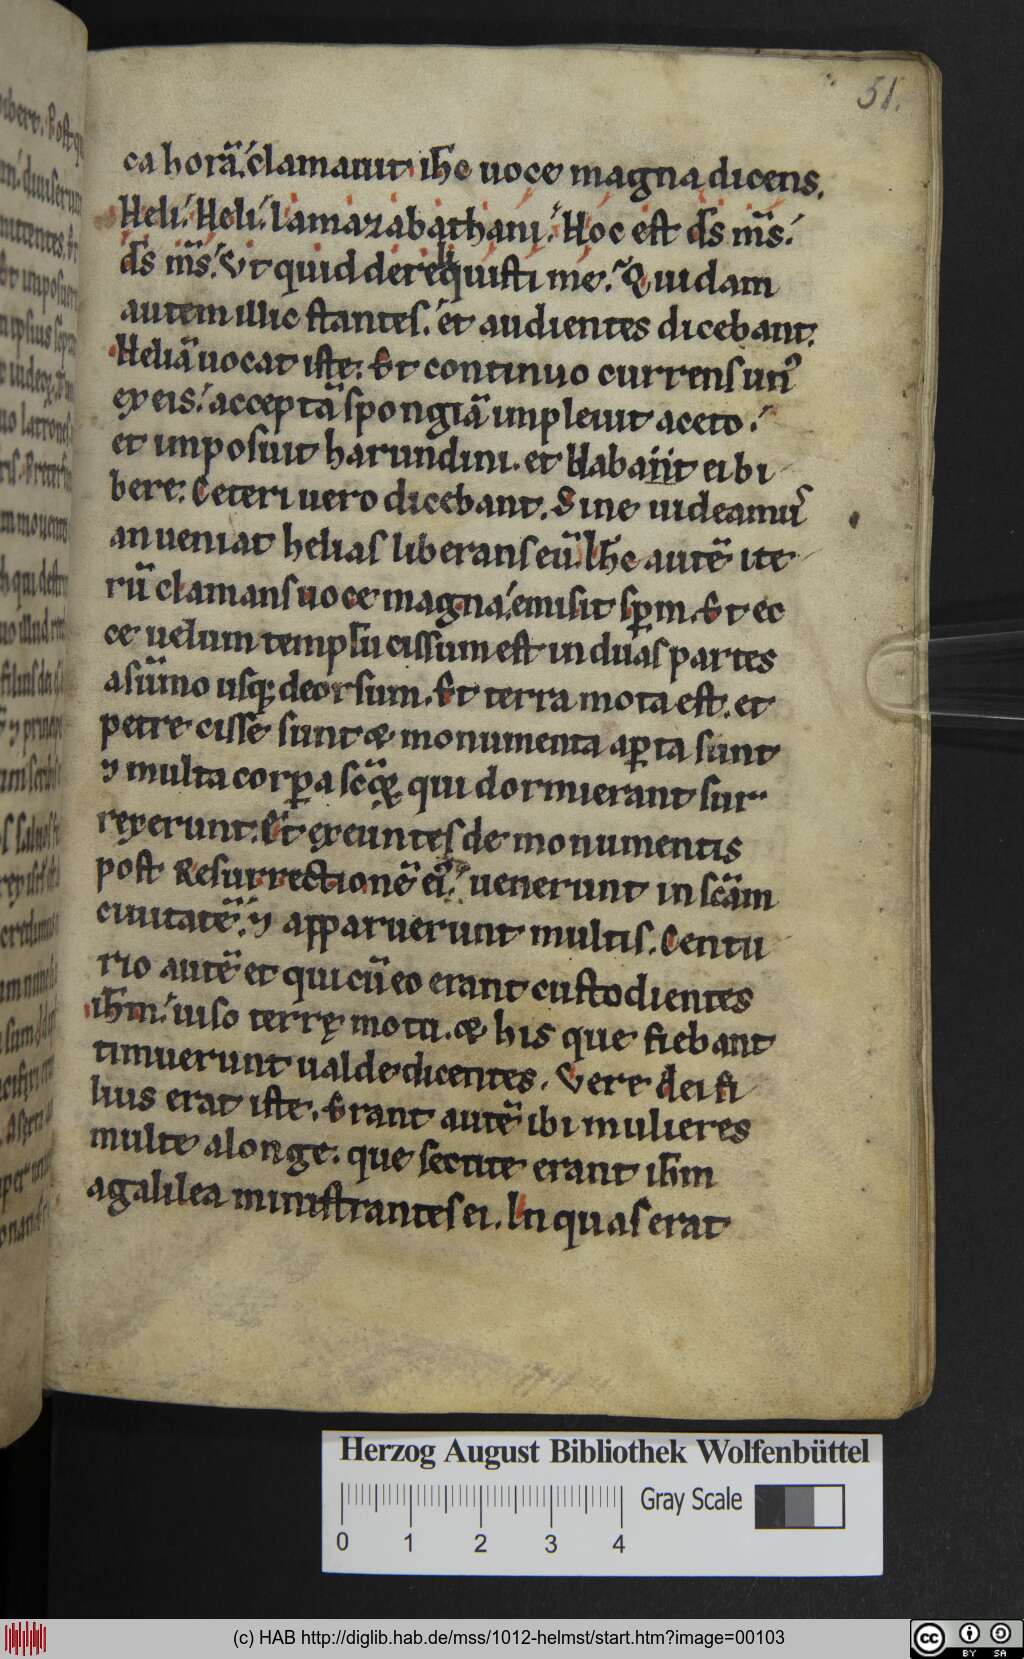 51.
ca horā. clamauit ih̅c uoce magna dicens.
Heli. Heli. lamazabathani. Hoc est ds̄ ms̄.
ds̄ ms̄. Vt quid dereliquisti me. Quidam
autem illic stantes. et audientes dicebant.
Heliā uocat iste. Et continuo currens unꝰ
ex eis. acceptā spongiā impleuit aceto.
et imposuit harundini. et dabat ei bi
bere. Ceteri uero dicebant. Sine uideamus
an ueniat helias liberans eū. Ih̅c autē ite
rū clamans uoce magna. emisit sp̄m. Et ec
ce uelum templi scissum est in duas partes
a sūmo usqꝫ deorsum. Et terra mota est. et
petre cisse sunt & monumenta aꝑta sunt
⁊ multa corꝑa scōꝝ qui dormierant sur
rexerunt. Et exeuntes de monumentis
post Resurrectionē eiꝰ. uenerunt in scām
ciuitatē. ⁊ apparuerunt multis. Centu
rio autē et qui cū eo erant custodientes
ih̅m. uiso terrę motu. & his que fiebant
timuerunt ualde dicentes. Vere dei fi
lius erat iste. Erant autē ibi mulieres
multe a longe. que secute erant ih̅m
a galilea ministrantes ei. In quas erat
Herzog August Bibliothek Wolfenbüttel
Gray Scale
0 1 2 3 4
(c) HAB http://diglib.hab.de/mss/1012-helmst/start.htm?image=00103
cc BY SA